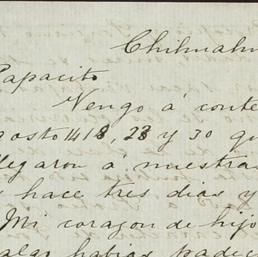 Chihuahu
Papacito
Vengo á conte
gosto 14 18, 23 y 30 qu
llegaron á nuestra
hace tres dias y
Mi corazon de hijo
habias padec